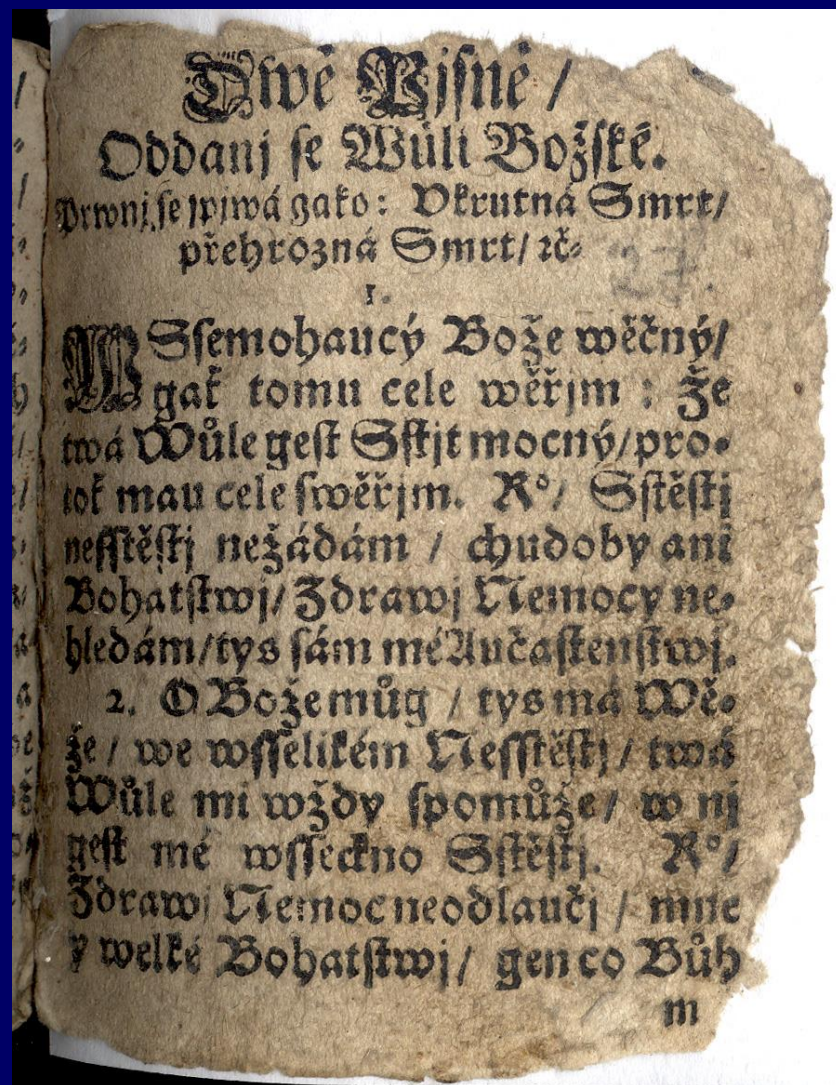 Dwě Pjsně /
Oddanj se Wůli Božské.
Prwnj se zpiwá gako: Vkrutná Smrt/
přehrozná Smrt/ ꝛč⸗
27.
1.
WSsemohaucý Bože wěčný/
gak tomu cele wěřjm : Že
twá Wůle gest Sstjt mocný/pro⸗
tok mau cele swěřjm. R°/ Sstěstj
nesstěstj nežádám / chudoby ani
Bohatstwj/ Zdrawj Nemocy ne⸗
hledám/tys sám mé Aučastenstwj.
2. O Bože můg / tys má Wě⸗
že / we wsselikém Nesstěstj / twá
Wůle mi wždy spomůže/ w nj
gest mé wsseckno Sstěstj. R°/
Zdrawj Nemoc neodlaučj / mne
y welké Bohatstwj/ gen co Bůh
m